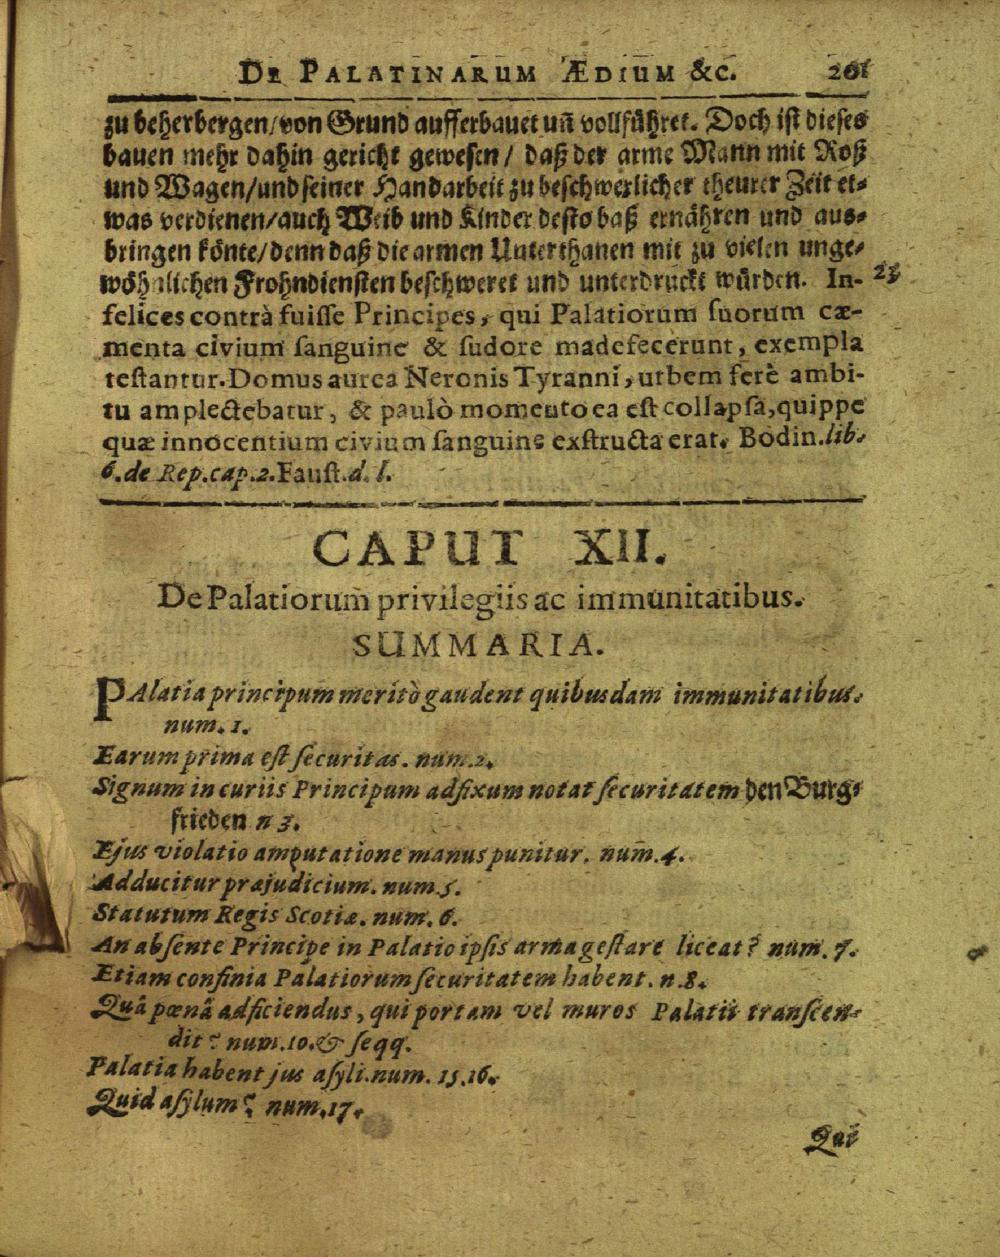 DE PALATINARUM ÆDIUM &c. 201
zu beherbergen/von Grund aufferbauet uñ vollführet. Doch ist dieses
bauen mehr dahin gericht gewesen/ daß der arme Mann mit Roß
und Wagen/und seiner Handarbeit zu beschwerlicher theurer Zeit et-
was verdienen/auch Weib und Kinder desto baß ernähren und aus-
bringen könte/denn daß die armen Unterthanen mit zu vielen unge-
wöhnlichen Frohndiensten beschweret und unterdruckt würden. In- 23
felices contrà fuisse Principes, qui Palatiorum suorum cæ-
menta civium sanguine & sudore madefecerunt, exempla
testantur. Domus aurea Neronis Tyranni, urbem ferè ambi-
tu amplectebatur, & paulò momento ea est collapsa, quippe
quæ innocentium civium sanguine exstructa erat. Bodin. lib.
6. de Rep. cap. 2. Faust. d. l.
CAPUT XII.
De Palatiorum privilegiis ac immunitatibus.
SUMMARIA.
PAlatia principum meritò gaudent quibusdam immunitatibus.
num. 1.
Earum prima est securitas. num. 2.
Signum in curiis Principum adfixum notat securitatem den Burg-
frieden n 3.
Ejus violatio amputatione manus punitur. num. 4.
Adducitur præjudicium. num. 5.
Statutum Regis Scotiæ. num. 6.
An absente Principe in Palatio ipsis arma gestare liceat? num. 7.
Etiam confinia Palatiorum securitatem habent. n. 8.
Quâ pœnâ adficiendus, qui portam vel muros Palatii transcen-
dit? num. 10. & seqq.
Palatia habent jus asyli. num. 15. 16.
Quid asylum? num. 17.
Qui